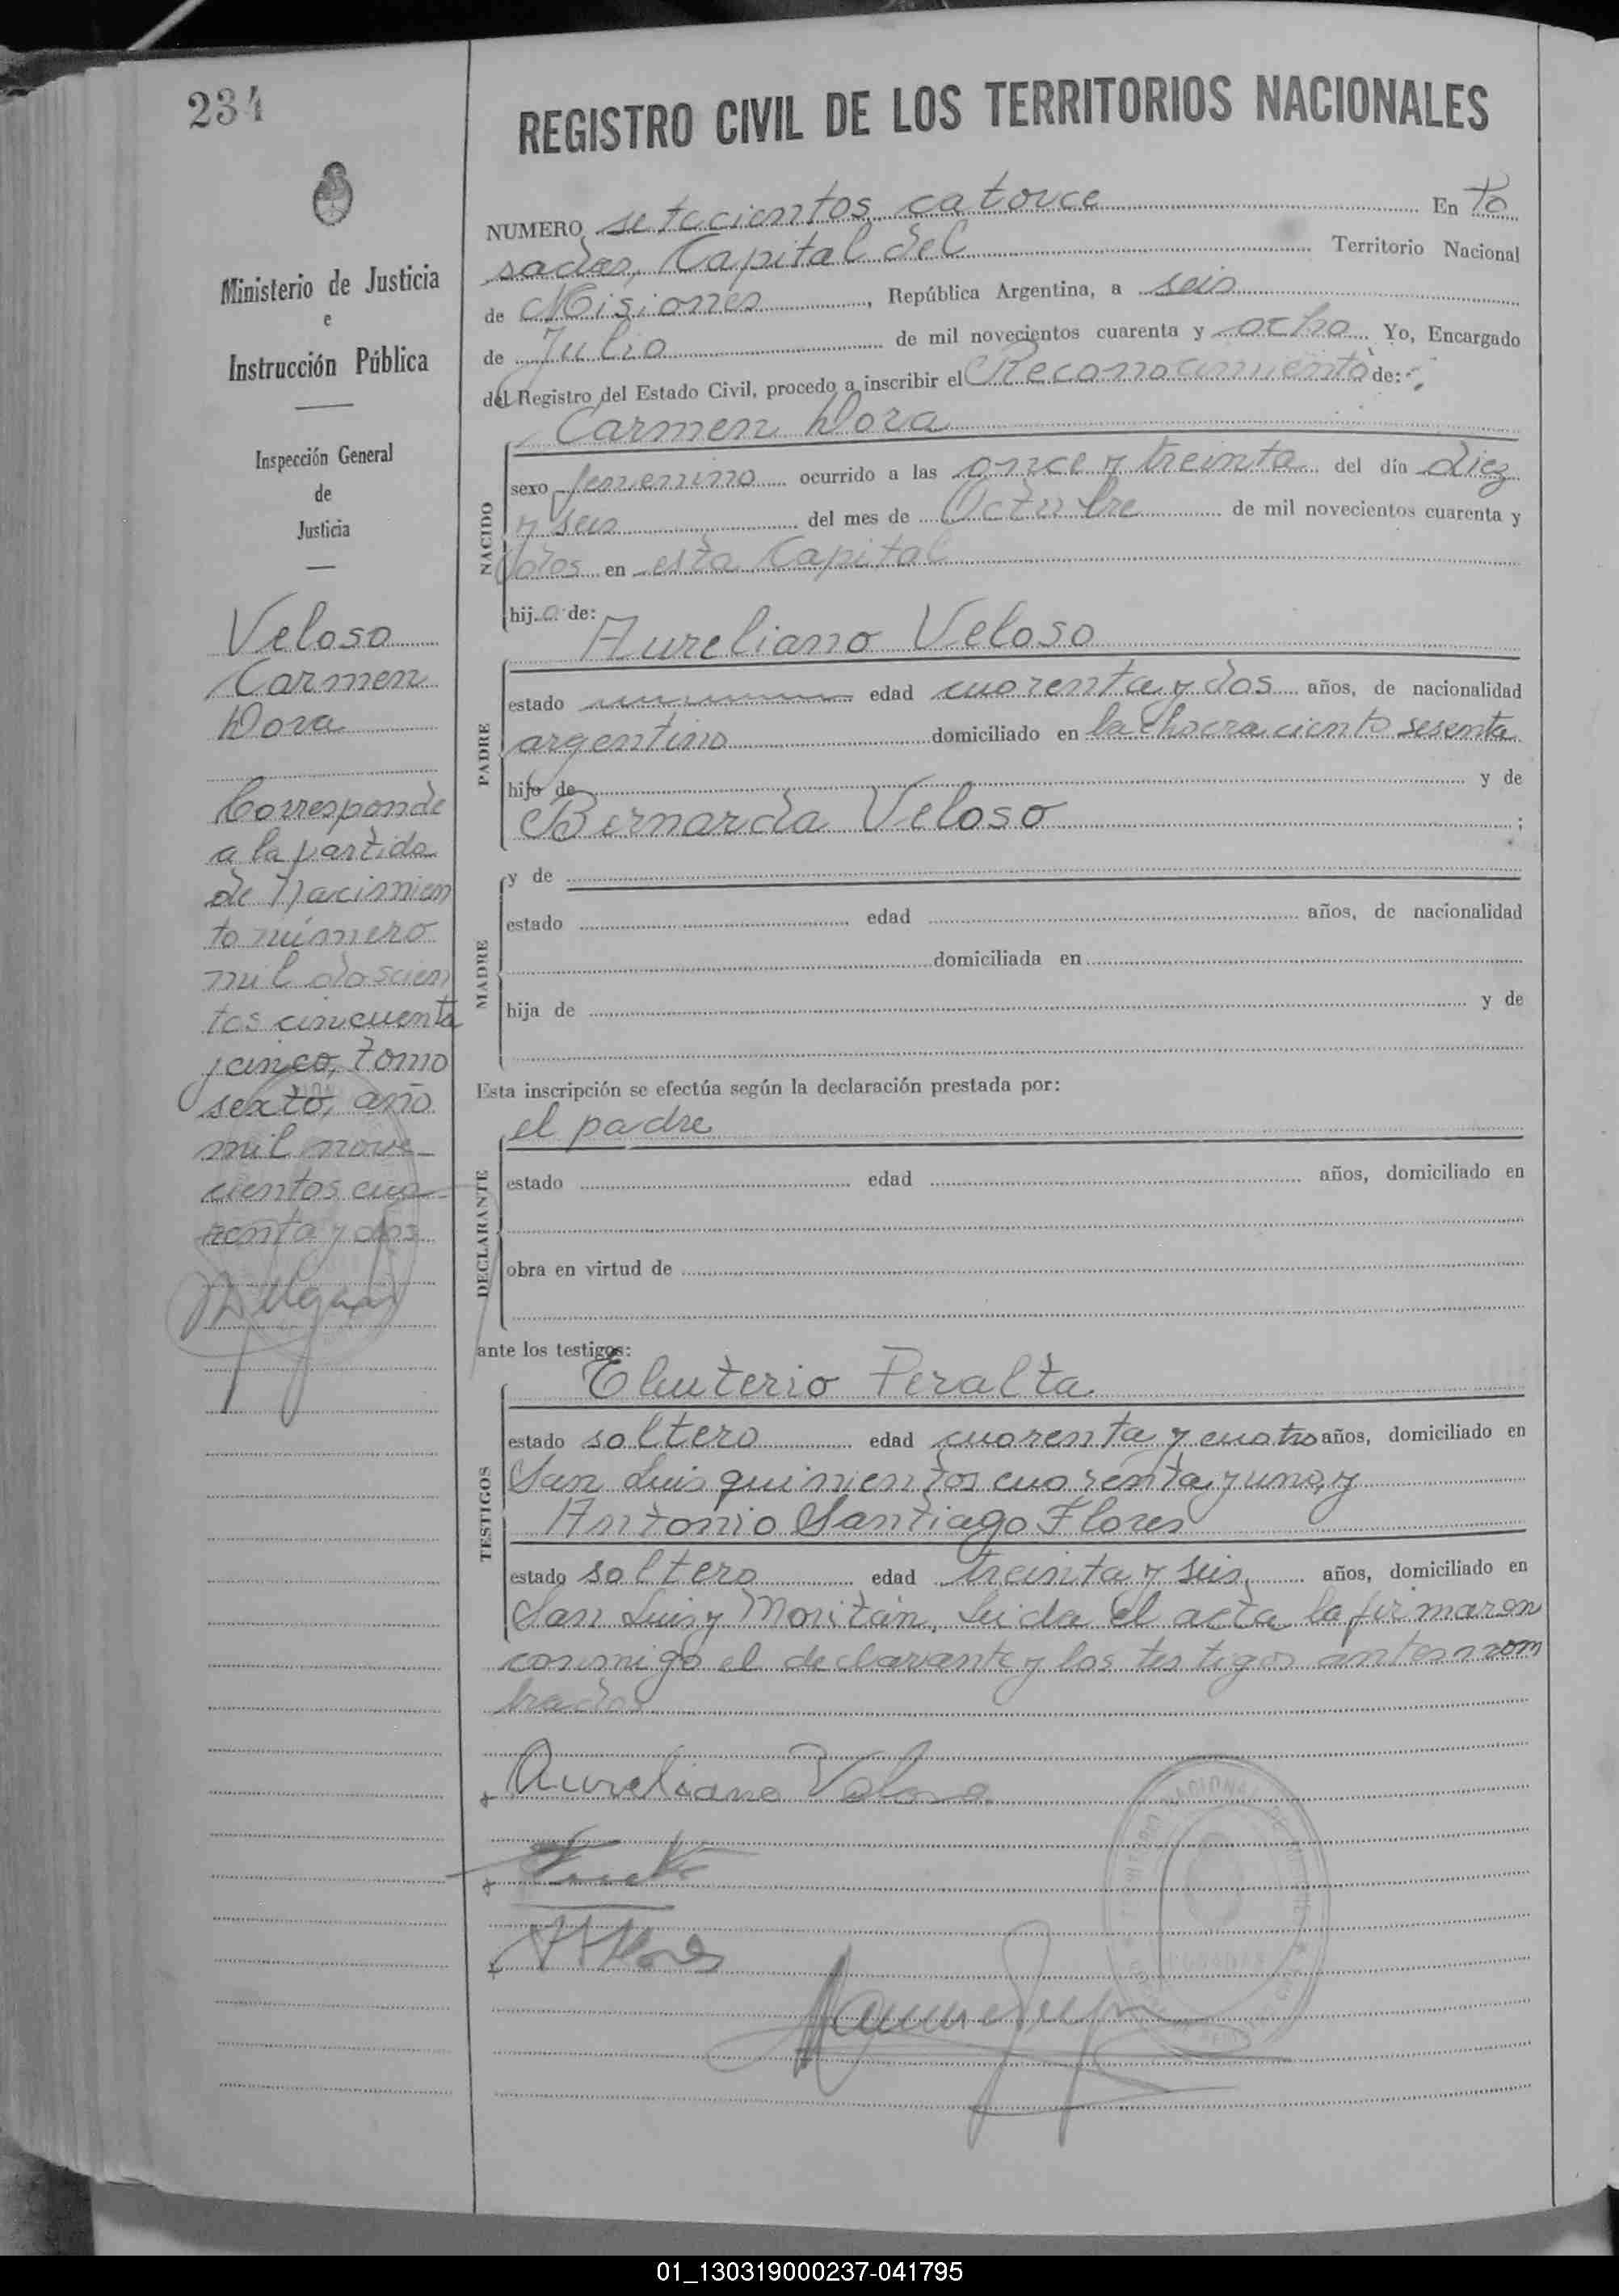 234
REGISTRO CIVIL DE LOS TERRITORIOS NACIONALES
Ministerio de Justicia
e
Instrucción Pública
Inspección General
de
Justicia
Veloso
Carmen
Dora
Corresponde
a la partida
de Nacimien
to número
mil doscien
tos cincuenta
y cinco, tomo
sexto, año
mil nove-
cientos cua-
renta y dos
NUMERO setecientos catorce En Po
sadas, Capital del Territorio Nacional
de Misiones, República Argentina, a seis
de Julio de mil novecientos cuarenta y ocho Yo, Encargado
del Registro del Estado Civil, procedo a inscribir el Reconocimiento de:
Carmen Dora
NACIDO
sexo femenino ocurrido a las once y treinta del día diez
y seis del mes de Octubre de mil novecientos cuarenta y
dos en esta Capital
hija de:
Aureliano Veloso
PADRE
estado edad cuarenta y dos años, de nacionalidad
argentino domiciliado en la chacra ciento sesenta
hijo de y de
Bernarda Veloso ;
MADRE
y de
estado edad años, de nacionalidad
domiciliada en
hija de y de
Esta inscripción se efectúa según la declaración prestada por:
el padre
DECLARANTE
estado edad años, domiciliado en
obra en virtud de
ante los testigos:
Eleuterio Peralta
TESTIGOS
estado soltero edad cuarenta y cuatro años, domiciliado en
San Luis quinientos cuarenta y uno, y
Antonio Santiago Flores
estado soltero edad treinta y seis, años, domiciliado en
San Luis y Moritán, Leida el acta la firmaron
conmigo el declarante y los testigos antes nom
brados
Aureliano Veloso
AFlores
01_130319000237-041795